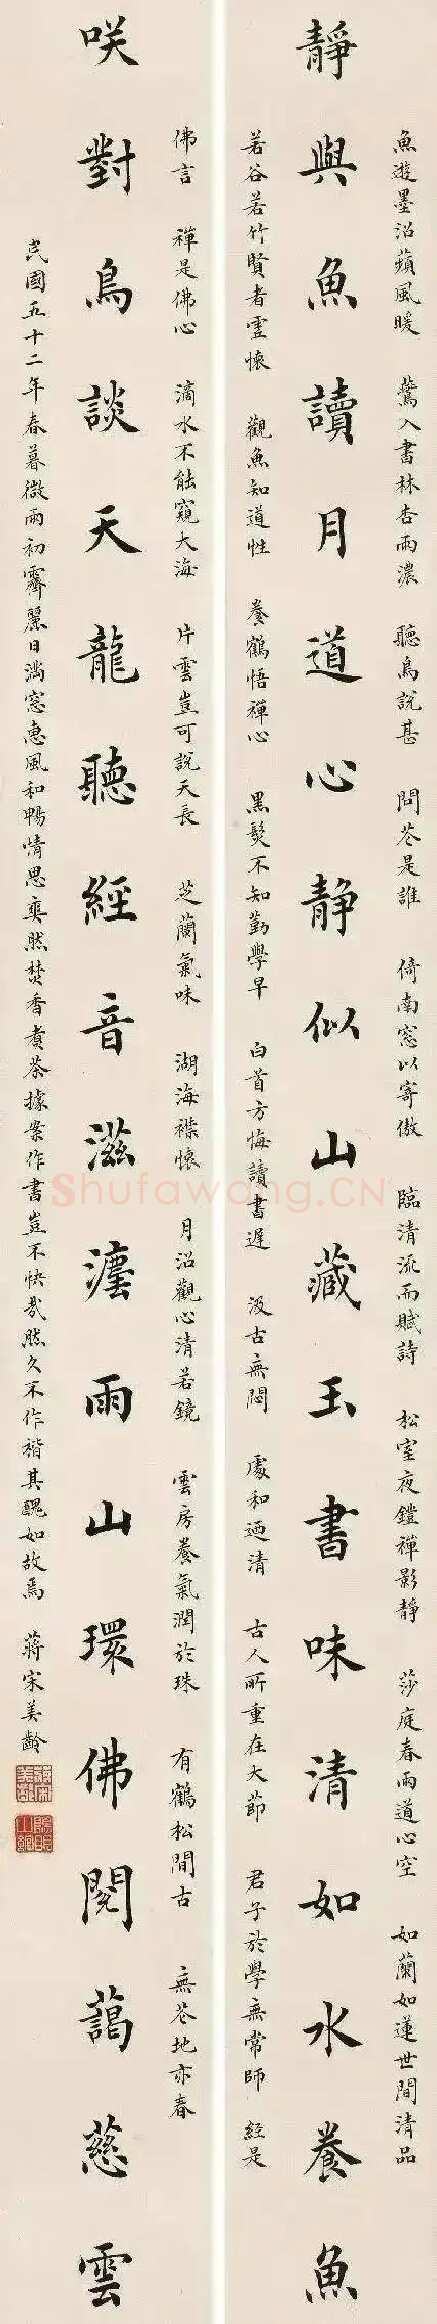 魚遊墨沼蘋風暖 鶯入書林杏雨濃 聽鳥說甚 問花是誰 倚南窓以寄傲 臨清流而賦詩 松室夜鐙禪影靜 莎庭春雨道心空 如蘭如蓮世間清品
靜與魚讀月道心静似山藏玉書味清如水養魚
若谷若竹賢者虛懷 觀魚知道性 養鶴悟禪心 黑髮不知勤學早 白首方悔讀書遲 汲古無悶 處和迺清 古人所重在大節 君子於學無常師 經是
佛言 禪是佛心 滴水不能窺大海 片雲豈可說天長 芝蘭氣味 湖海襟懷 月沼觀心清若鏡 雲房養氣潤於珠 有鶴松間古 無花地亦春
咲對鳥談天龍聽經音滋灋雨山環佛閣藹慈雲
民國五十二年春暮微雨初霽麗日滿窓惠風和暢情思爽然焚香煮茶據案作書豈不快哉然久不作楷其醜如故焉 蔣宋美齡
Shufawang.CN